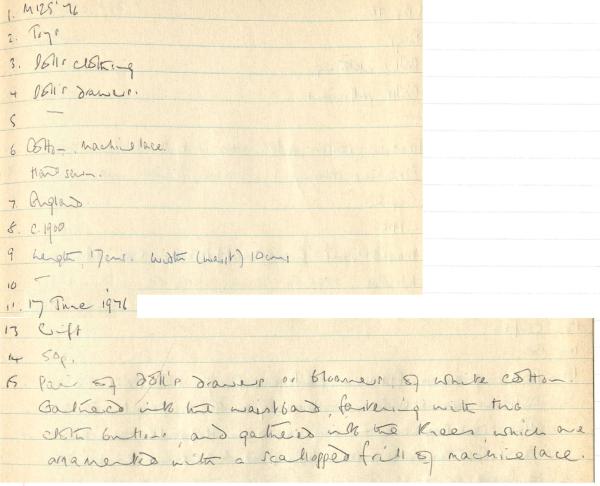 1. M125'76
2. Toys
3. Doll's clothing
4 Doll's drawers.
5 —
6 Cotton. machine lace.
Hand sewn.
7. England
8. c.1900
9 Length, 17cms. Width (waist) 10cms
10 —
11. 17 June 1976
13 Gift
14 50p.
15 Pair of doll's drawers or bloomers, of white cotton.
Gathered into the waistband, fastening with two
cloth buttons, and gathered into the knees, which are
ornamented with a scalloped frill of machine lace.